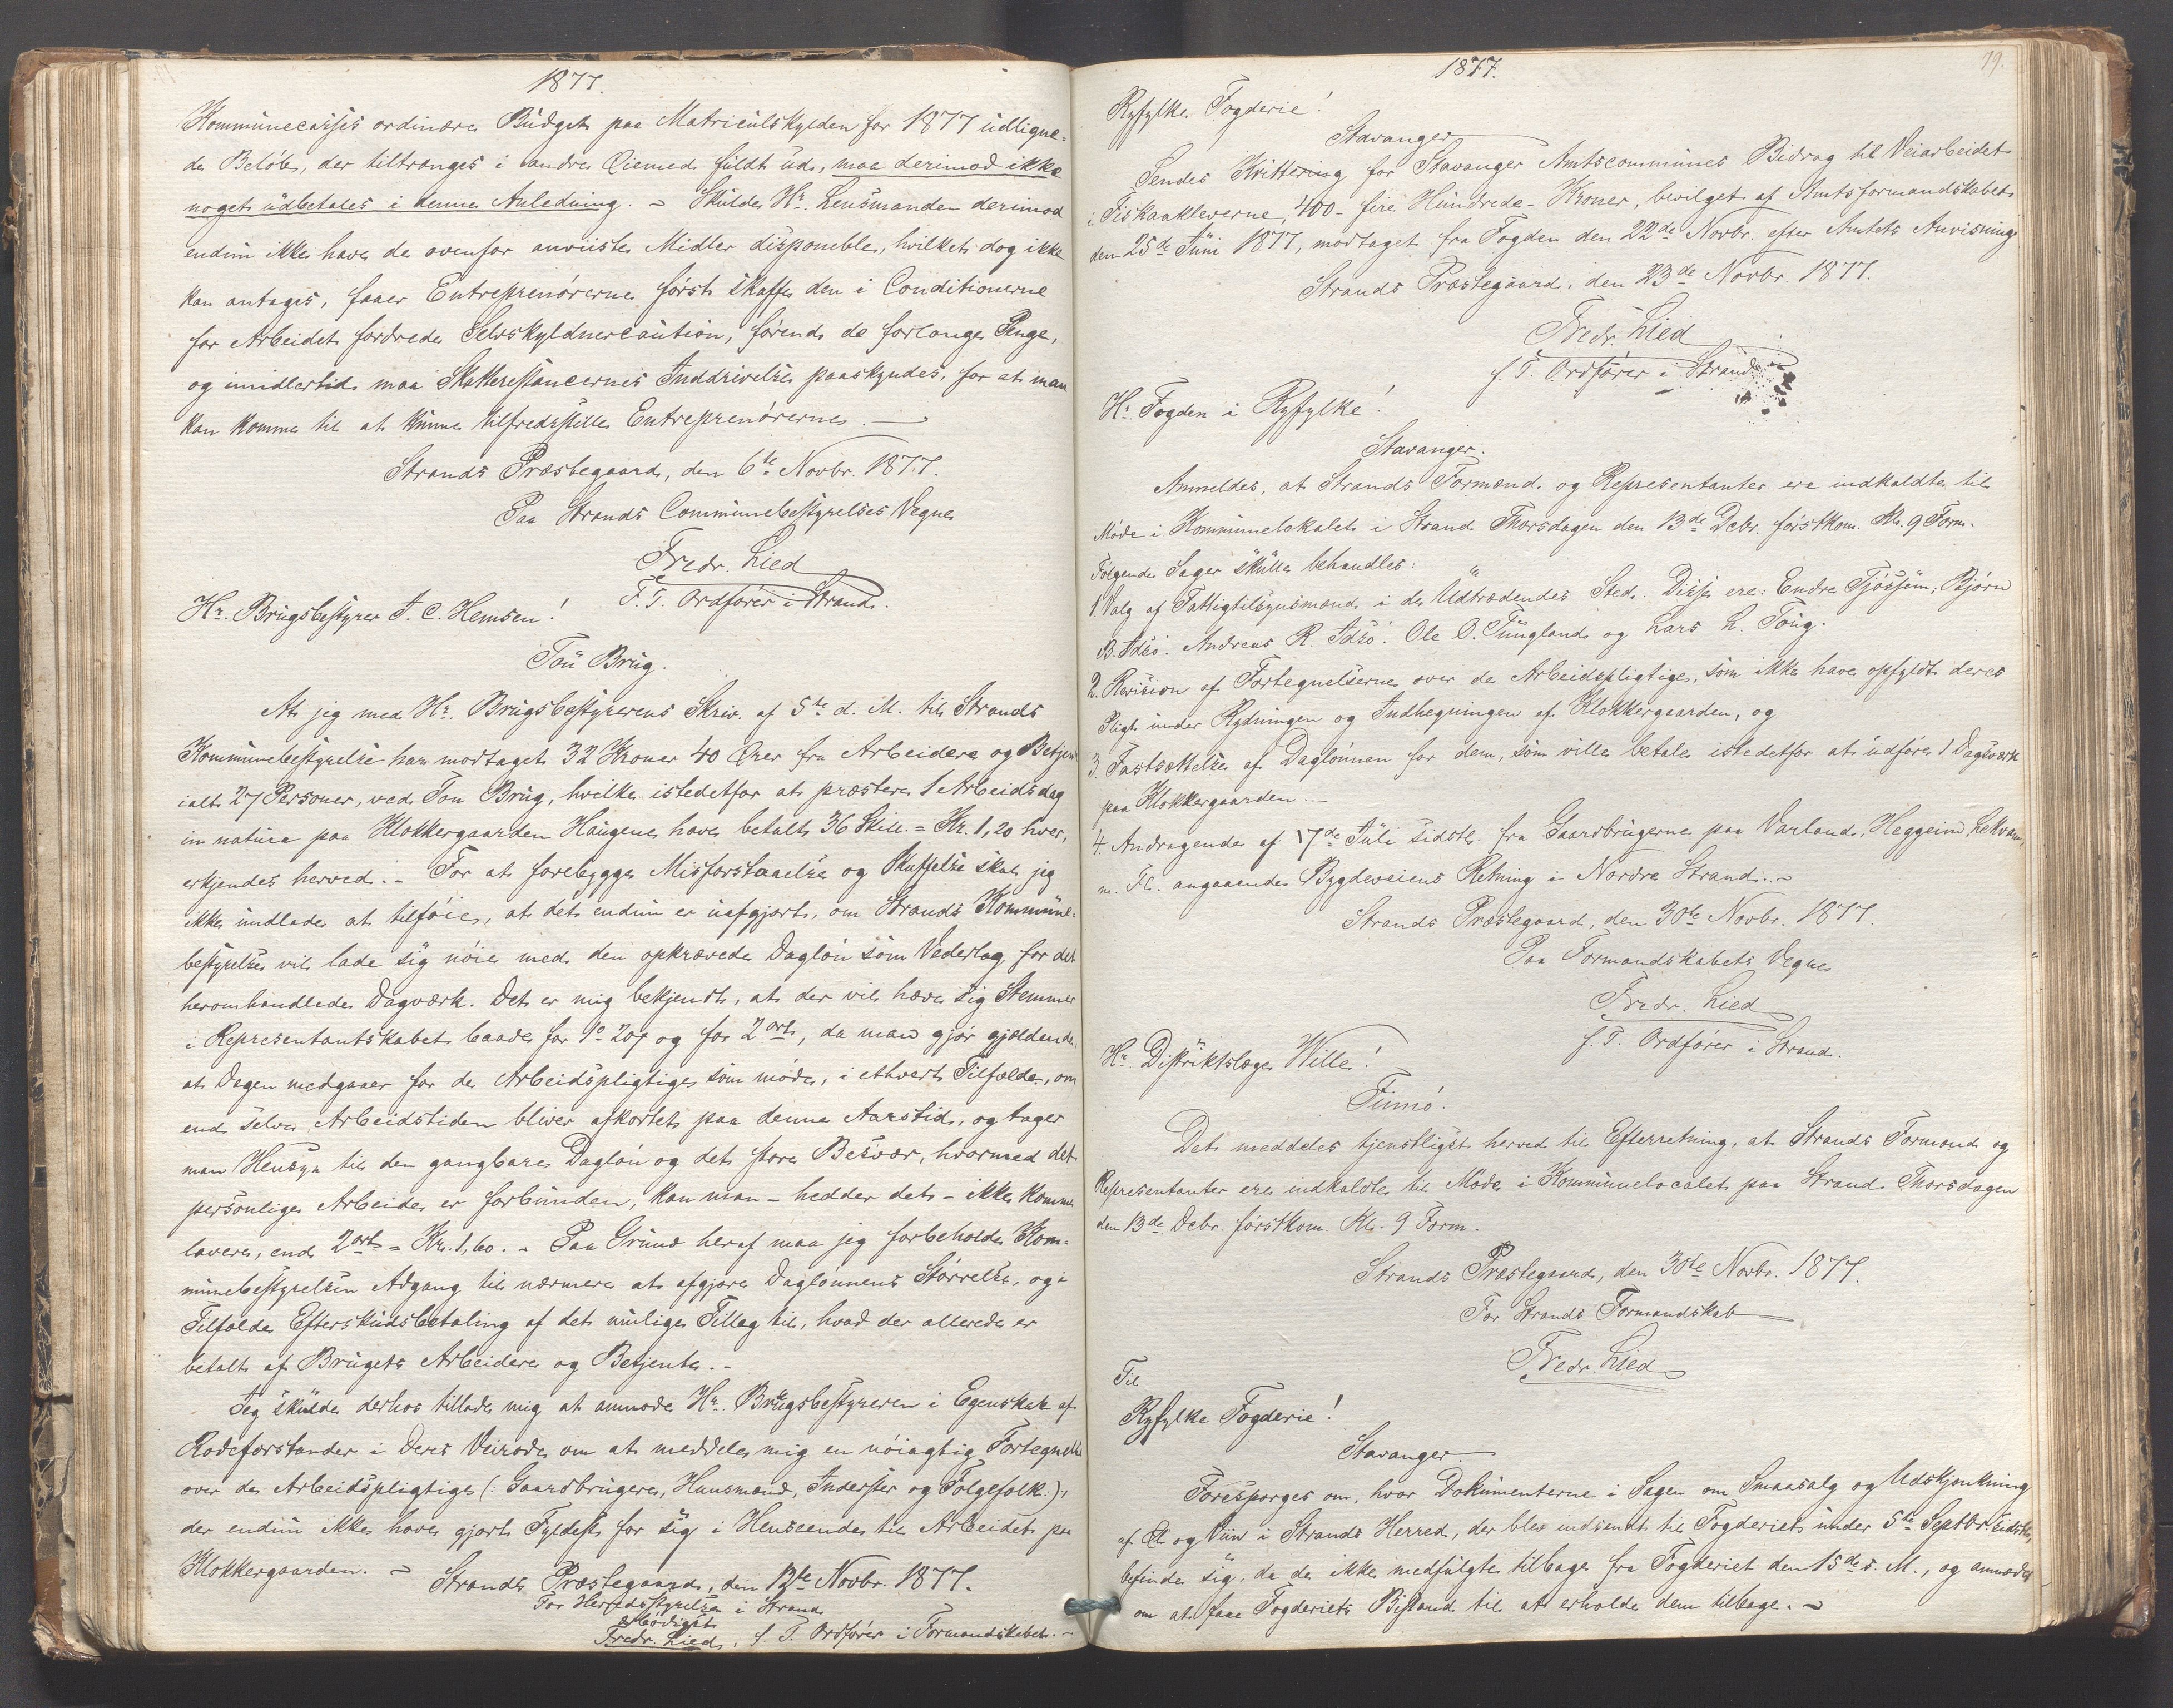 1877.
Kommunecasses ordinære Budget paa Matriculskylden for 1877 udligne-
de Beløb, der tiltrænges i andre Øiemed fuldt ud, maa derimod ikke
noget udbetales i denne Anledning. - Skulde Hr. Lensmanden derimod
endnu ikke have de ovenfor anviiste Midler disponible, hvilket dog ikke
kan antages, faaer Entreprenørerne først skaffe den i Conditionerne
for Arbeidet fordrede Selvskyldnercaution, førend de forlange Penge,
og imidlertid maa Skatterestancernes Inddrivelse paaskyndes, for at man
kan komme til at kunne tilfredsstille Entreprenørerne. -
Strands Præstegaard, den 6te Novbr. 1877.
Paa Strands Communebestyrelses Vegne
Fredr. Lied
F. T. Ordfører i Strand.
Hr. Brugsbestyrer A. C. Hemsen!
Tou Brug.
At jeg med Hr. Brugsbestyrerens Skriv. af 5te d. M. til Strands
Kommunebestyrelse har modtaget 32 Kroner 40 Ører fra Arbeidere og Betjen
ialt 27 Personer, ved Tou Brug, hvilke istedetfor at præstere 1 Arbeidsdag
in natura paa Klokkergaarden Haugene have betalt 36 Skill. = Kr. 1,20 hver,
erkjendes herved. - For at forebygge Misforstaaelse og Skuffelse skal jeg
ikke undlade at tilføie, at det endnu er uafgjort, om Strands Kommune-
bestyrelse vil lade sig nøie med den opkrævede Dagløn som Vederlag for det
heromhandlede Dagværk. Det er mig bekjendt, at der vil hæve sig Stemmer
i Representantskabet baade for 1o 20f og for 2 ort, da man gjør gjældende,
at Dagen medgaaer for de Arbeidspligtige som møde, i ethvert Tilfælde, om
end selve Arbeidstiden bliver afkortet paa denne Aarstid, og tager
man Hensyn til den gangbare Dagløn og det store Besvær, hvormed det
personlige Arbeide er forbunden, kan man - hedder det - ikke komme
lavere, end 2 ort = Kr. 1,60. - Paa Grund heraf maa jeg forbeholde Kom-
munebestyrelsen Adgang til nærmere at afgjøre Daglønnens Størrelse, og i
Tilfælde Efterskudsbetaling af det mulige Tillæg til, hvad der allerede er
betalt af Brugets Arbeidere og Betjente. -
Jeg skulde derhos tillade mig at anmode Hr. Brugsbestyreren i Egenskab af
Rodeforstander i Deres Veirode om at meddele mig en nøiagtig Fortegnelse
over de Arbeidspligtige (: Gaardbrugere, Huusmænd, Inderster og Følgefolk :),
der endnu ikke have gjort Fyldest for sig i Henseende til Arbeidet paa
Klokkergaarden. -
Strands Præstegaard, den 12te Novbr. 1877.
For Herredsstyrelsen i Strand
ærbødigst
Fredr. Lied, f. T. Ordfører i Formandskabet. -
1877.
79.
Ryfylke Fogderie!
Stavanger
Sendes Kvittering for Stavanger Amtscommunes Bidrag til Veiarbeidet
i Fiskaakleverne, 400 - fire Hundrede - Kroner, bevilget af Amtsformandskabet
den 25de Juni 1877, modtaget fra Fogden den 22de Novbr. efter Amtets Anvisning.
Strands Præstegaard, den 23de Novbr. 1877.
Fredr. Lied
f. T. Ordfører i Strand
Hr. Fogden i Ryfylke!
Stavanger.
Anmeldes, at Strands Formænd og Representanter ere indkaldte til
Møde i Kommunelokalet i Strand Thorsdagen den 13de Debr. førstkom. Kl. 9 Form.
Følgende Sager skulle behandles:
1. Valg af Fattigtilsynsmænd i de Udtrædendes Sted. Disse ere: Endre Tjøssem, Bjørn
B. Idsø. Andreas R. Idsø. Ole O. Tungland og Lars L. Toug.
2. Revision af Fortegnelserne over de Arbeidspligtige, som ikke have opfyldt deres
Pligt under Rydningen og Indhegningen af Klokkergaarden, og
3. Fastsættelse af Daglønnen for dem, som ville betale istedetfor at udføre 1 Dagsværk
paa Klokkergaarden. -
4. Andragende af 17de Juli sidstl. fra Gaardbrugerne paa Varland, Heggeim, Lekvam,
m. Fl. angaaende Bygdeveiens Retning i Nordre Strand. -
Strands Præstegaard, den 30te Novbr. 1877.
Paa Formandskabets Vegne
Fredr. Lied
f. T. Ordfører i Strand.
Hr. Distriktslæge Wille!
Finnø.
Det meddeles tjenstligst herved til Efterretning, at Strands Formænd og
Representanter ere indkaldte til Møde i Kommunelocalet paa Strand Thorsdagen
den 13de Debr. førstkom. Kl. 9 Form.
Strands Præstegaard, den 30te Novbr. 1877.
For Strands Formandskab
Fredr. Lied
Til
Ryfylke Fogderie!
Stavanger.
Forespørges om, hvor Dokumenterne i Sagen om Smaasalg og Udskjænkning
af Øl og Viin i Strands Herred, der blev indsendt til Fogderiet under 5te Septbr. sidstl.,
befinde sig, da de ikke medfulgte tilbage fra Fogderiet den 15de s. M., og anmodes
om at faae Fogderiets Bistand til at erholde dem tilbage. -